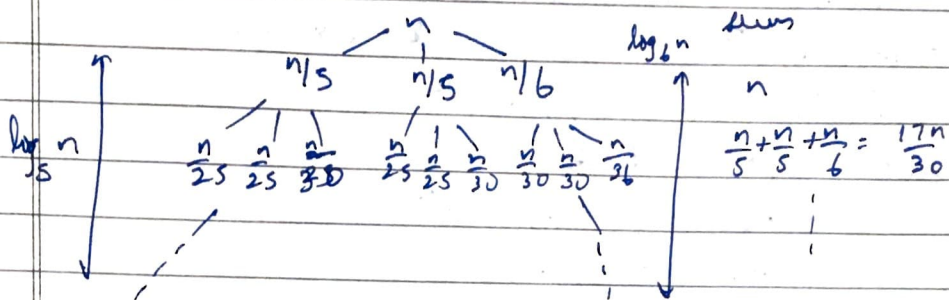 n log₆n sum
n/5 n/5 n/6 n
log₅ n n/25 n/25 n/30 n/25 n/25 n/30 n/30 n/30 n/36 n/5 + n/5 + n/6 = 17n/30